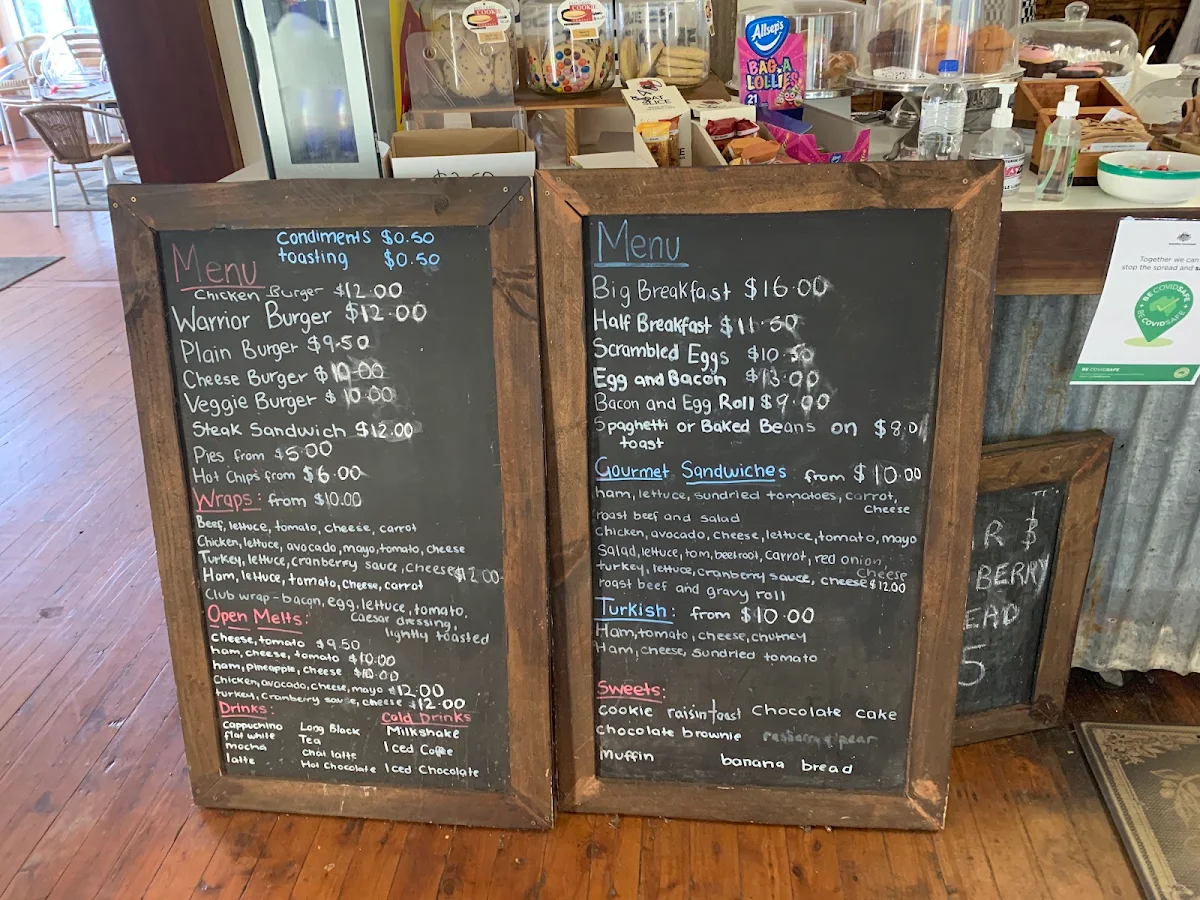 Menu
Condiments $0.50
toasting $0.50
Chicken Burger $12.00
Warrior Burger $12.00
Plain Burger $9.50
Cheese Burger $10.00
Veggie Burger $10.00
Steak Sandwich $12.00
Pies from $5.00
Hot Chips from $6.00
Wraps: from $10.00
Beef, lettuce, tomato, cheese, carrot
Chicken, lettuce, avocado, mayo, tomato, cheese
Turkey, lettuce, cranberry sauce, cheese $12.00
Ham, lettuce, tomato, cheese, carrot
Club wrap - bacon, egg, lettuce, tomato,
caesar dressing,
lightly toasted
Open Melts:
cheese, tomato $9.50
ham, cheese, tomato $10.00
ham, pineapple, cheese $10.00
Chicken, avocado, cheese, mayo $12.00
turkey, cranberry sauce, cheese $12.00
Drinks:
cappuccino
flat white
mocha
latte
Long Black
Tea
Chai latte
Hot Chocolate
Cold Drinks
Milkshake
Iced Coffee
Iced Chocolate
Menu
Big Breakfast $16.00
Half Breakfast $11.50
Scrambled Eggs $10.50
Egg and Bacon $13.00
Bacon and Egg Roll $9.00
Spaghetti or Baked Beans on $8.0
toast
Gourmet Sandwiches from $10.00
ham, lettuce, sundried tomatoes, carrot,
cheese
roast beef and salad
Chicken, avocado, cheese, lettuce, tomato, mayo
Salad, lettuce, tom, beetroot, carrot, red onion,
cheese
turkey, lettuce, cranberry sauce, cheese $12.00
roast beef and gravy roll
Turkish: from $10.00
Ham, tomato, cheese, chutney
Ham, cheese, sundried tomato
Sweets:
cookie raisin toast Chocolate cake
chocolate brownie
muffin banana bread
Allsep's
BAG-A
LOLLIES
21
COOKIE
COOKIE
SLICE
R $
BERRY
EAD
5
Together we can
stop the spread and
BE COVIDSAFE
BE COVIDSAFE
BE COVIDSAFE